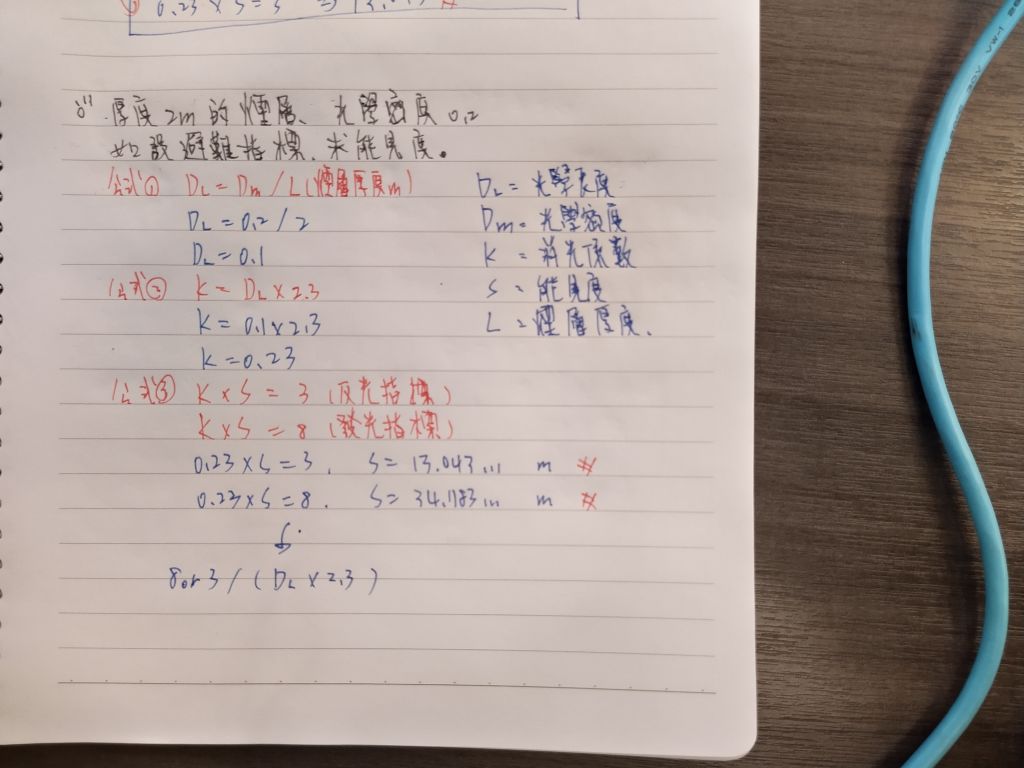 0.23 × S = 3
厚度2m的煙層、光學密度0.2
如設避難指標、求能見度。
公式① DL = Dm / L(煙層厚度m)
DL = 0.2 / 2
DL = 0.1
公式② K = DL × 2.3
K = 0.1 × 2.3
K = 0.23
公式③ K × S = 3 (反光指標)
K × S = 8 (發光指標)
0.23 × S = 3 . S = 13.043... m #
0.23 × S = 8 . S = 34.783... m #
8 or 3 / ( DL × 2.3 )
DL = 光學
Dm = 光學密度
K = 消光係數
S = 能見度
L = 煙層厚度.